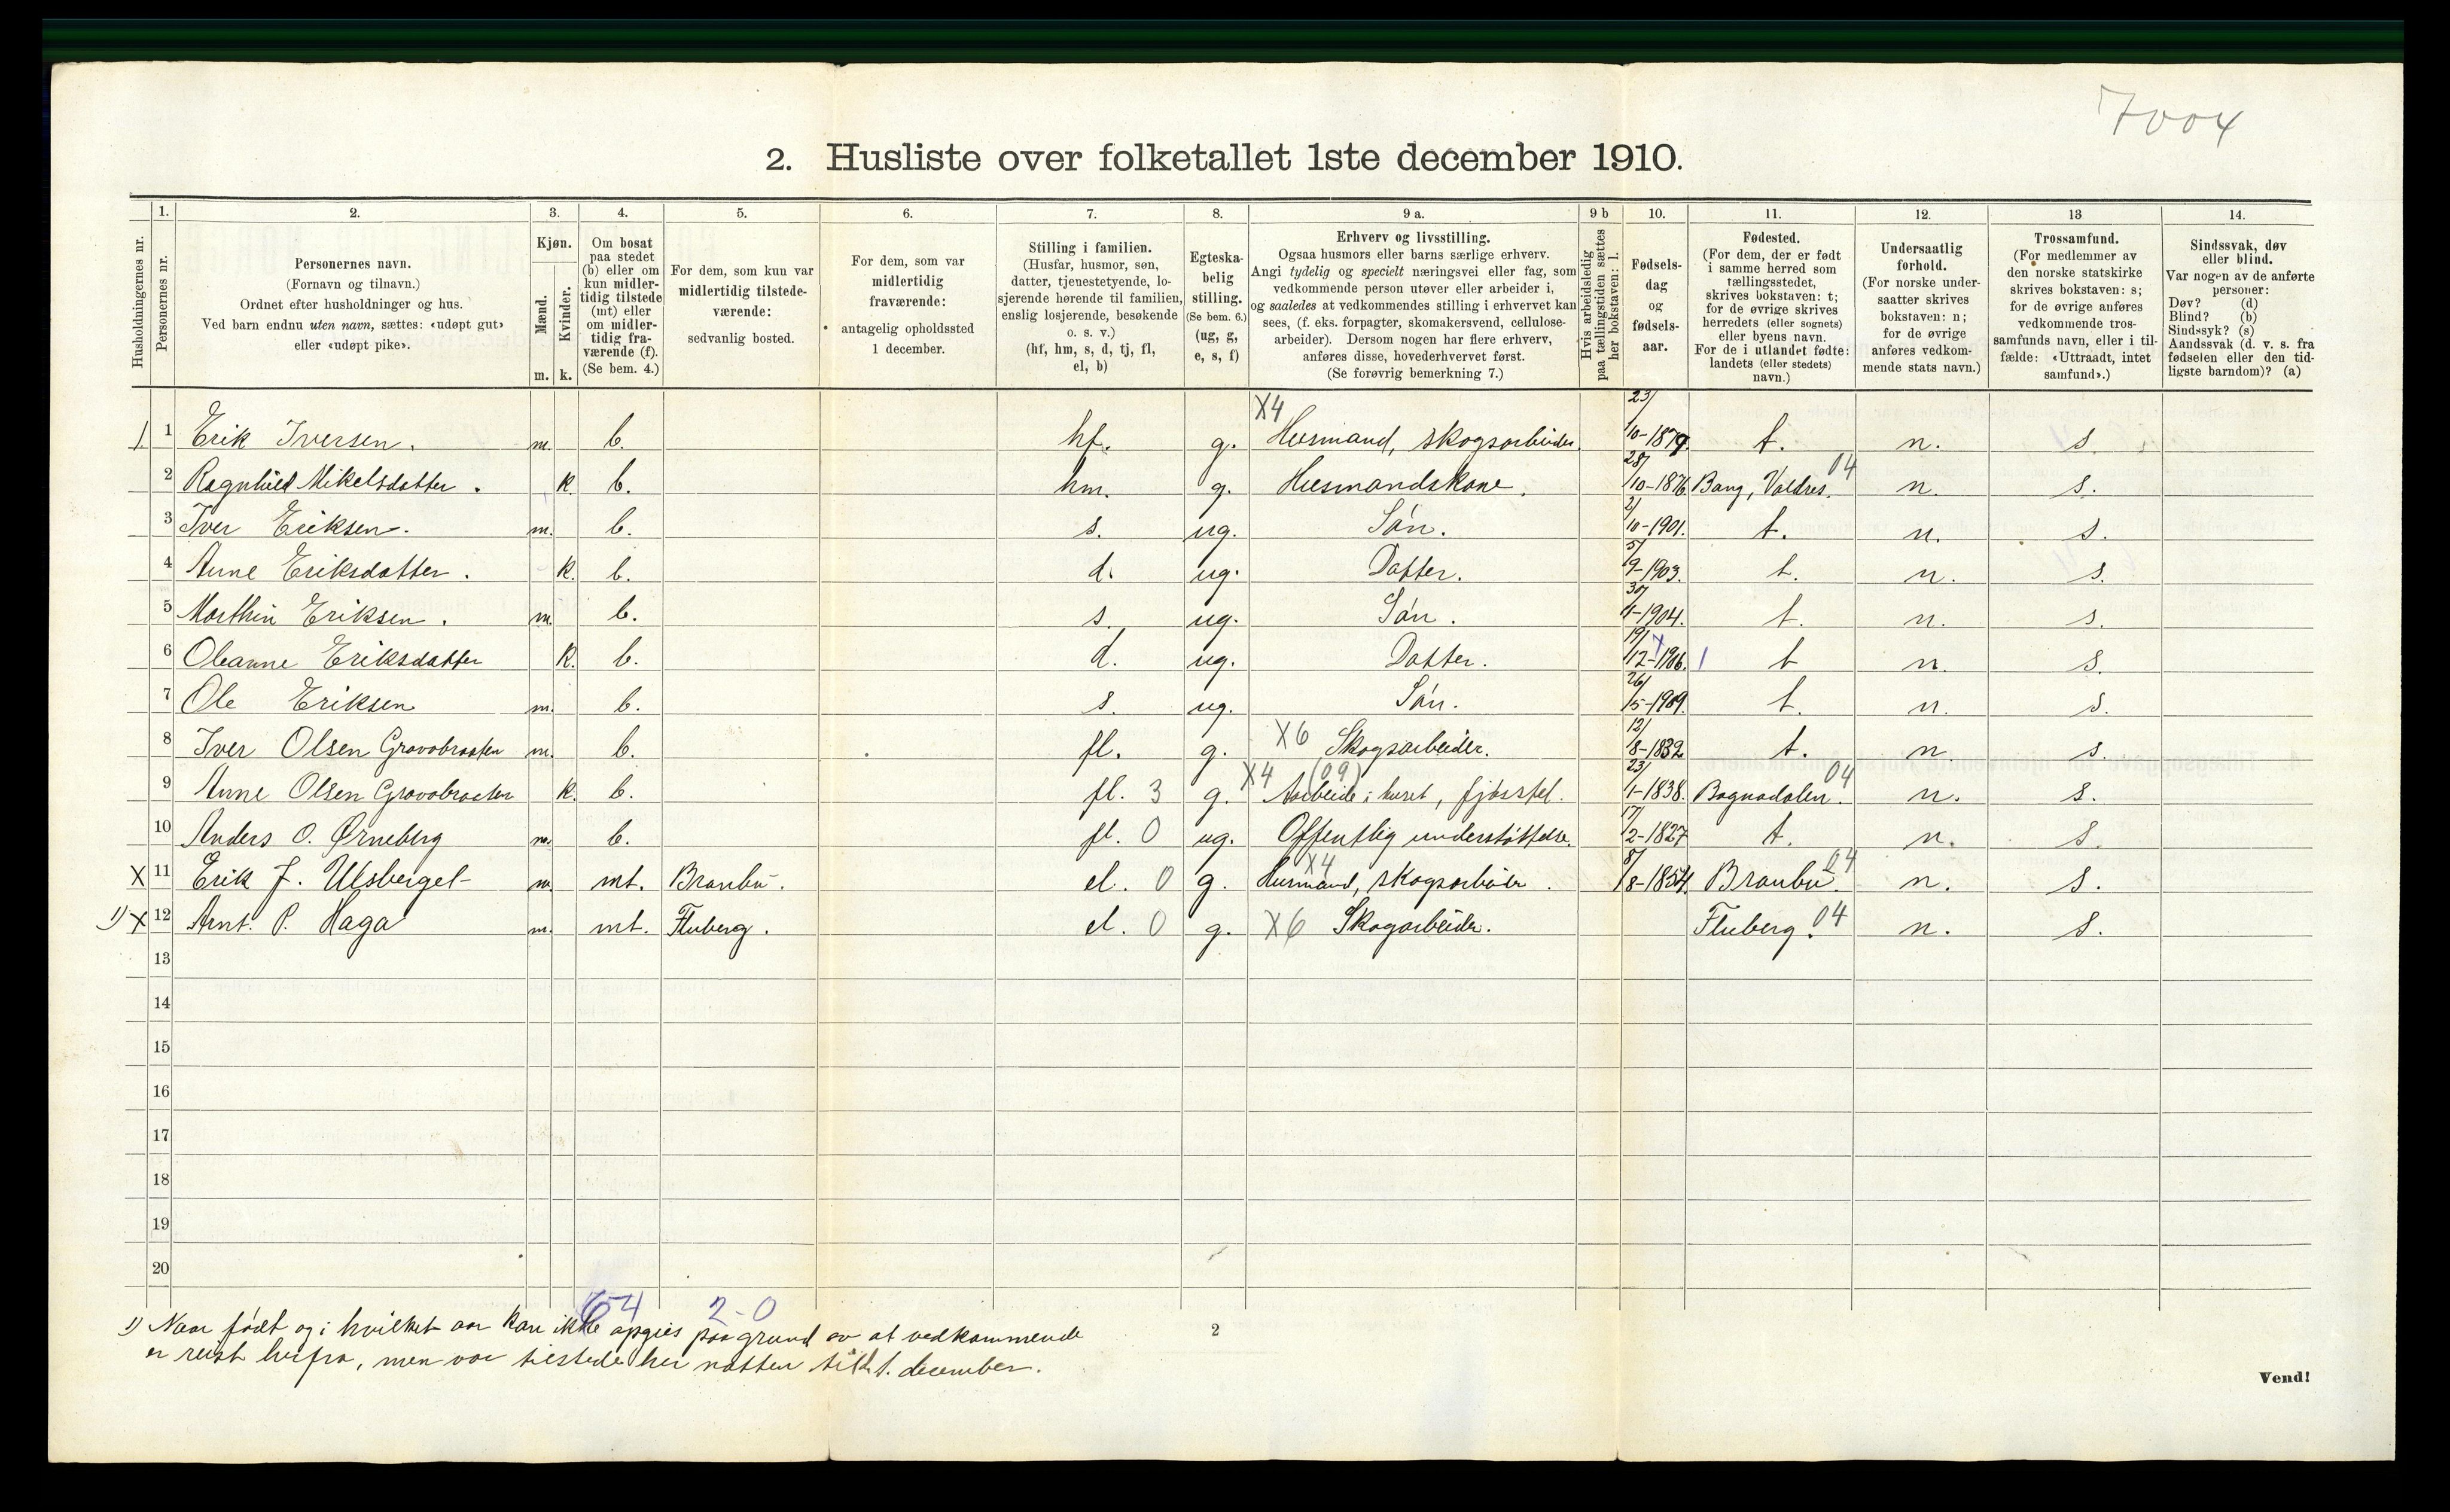 7004
2. Husliste over folketallet 1ste december 1910.
Husholdningernes nr.
1. Personernes nr.
2. Personernes navn.
(Fornavn og tilnavn.)
Ordnet efter husholdninger og hus.
Ved barn endnu uten navn, sættes: «udøpt gut»
eller «udøpt pike».
3. Kjøn.
Mænd. m.
Kvinder. k.
4. Om bosat
paa stedet
(b) eller om
kun midler-
tidig tilstede
(mt) eller
om midler-
tidig fra-
værende (f).
(Se bem. 4.)
5. For dem, som kun var
midlertidig tilstede-
værende:
sedvanlig bosted.
6. For dem, som var
midlertidig
fraværende:
antagelig opholdssted
1 december.
7. Stilling i familien.
(Husfar, husmor, søn,
datter, tjenestetyende, lo-
sjerende hørende til familien,
enslig losjerende, besøkende
o. s. v.)
(hf, hm, s, d, tj, fl,
el, b)
8. Egteska-
belig
stilling.
(Se bem. 6.)
(ug, g,
e, s, f)
9 a. Erhverv og livsstilling.
Ogsaa husmors eller barns særlige erhverv.
Angi tydelig og specielt næringsvei eller fag, som
vedkommende person utøver eller arbeider i,
og saaledes at vedkommendes stilling i erhvervet kan
sees, (f. eks. forpagter, skomakersvend, cellulose-
arbeider). Dersom nogen har flere erhverv,
anføres disse, hovederhvervet først.
(Se forøvrig bemerkning 7.)
9 b Hvis arbeidsledig
paa tællingstiden sættes
her bokstaven: l.
10. Fødsels-
dag
og
fødsels-
aar.
11. Fødested.
(For dem, der er født
i samme herred som
tællingsstedet,
skrives bokstaven: t;
for de øvrige skrives
herredets (eller sognets)
eller byens navn.
For de i utlandet fødte:
landets (eller stedets)
navn.)
12. Undersaatlig
forhold.
(For norske under-
saatter skrives
bokstaven: n;
for de øvrige
anføres vedkom-
mende stats navn.)
13 Trossamfund.
(For medlemmer av
den norske statskirke
skrives bokstaven: s;
for de øvrige anføres
vedkommende tros-
samfunds navn, eller i til-
fælde: «Uttraadt, intet
samfund».)
14. Sindssvak, døv
eller blind.
Var nogen av de anførte
personer:
Døv? (d)
Blind? (b)
Sindssyk? (s)
Aandssvak (d. v. s. fra
fødselen eller den tid-
ligste barndom)? (a)
1. 1 Erik Iversen. m. b. hf. g. X4 Husmand, skogsarbeider. 23/10-1879. t. n. s.
2 Ragnhild Mikelsdatter. k. b. hm. g. Husmandskone. 28/10-1876 Bang, Valdres. 04 n. s.
3 Iver Eriksen. m. b. s. ug. Søn. 2/10-1901. t. n. s.
4 Anne Eriksdatter. k. b. d. ug. Datter. 5/9-1903. t. n. s.
5 Marthin Eriksen. m. b. s. ug. Søn. 30/-1904. t. n. s.
6 Oleanne Eriksdatter k. b. d. ug. Datter. 19/12-1906. t n. s.
7 Ole Eriksen m. b. s. ug. Søn. 26/5-1909. t. n. s.
8 Iver Olsen Gravobraaten m. b. fl. g. X6 Skogsarbeider. 12/8-1832 t. n s.
9 Anne Olsen Gravobraaten k. b. fl. 3 g. X4 (09) Arbeide i huset, fjøsstel. 23/1-1838. Bagnadalen. 04 n. s.
10 Anders O. Ørneberg m. b. fl. 0 ug. Offentlig understøttelse. 17/2-1827 t. n. s.
X 11 Erik J. Ulsberget m. mt. Brandbu. el. 0 g. X4 Husmand, skogsarbeider. 8/8-1854. Brandbu. 04 n. s.
1) X 12 Arnt. P. Haga m. mt. Fluberg. el. 0 g. X6 Skogarbeider. Fluberg. 04 n. s.
13
14
15
16
17
18
19
20
54 2-0
1) Naar født og i hvilket aar kan ikke opgies paa grund av at vedkommende
er reist herfra, men var tilstede her natten til 1. december.
2
Vend!